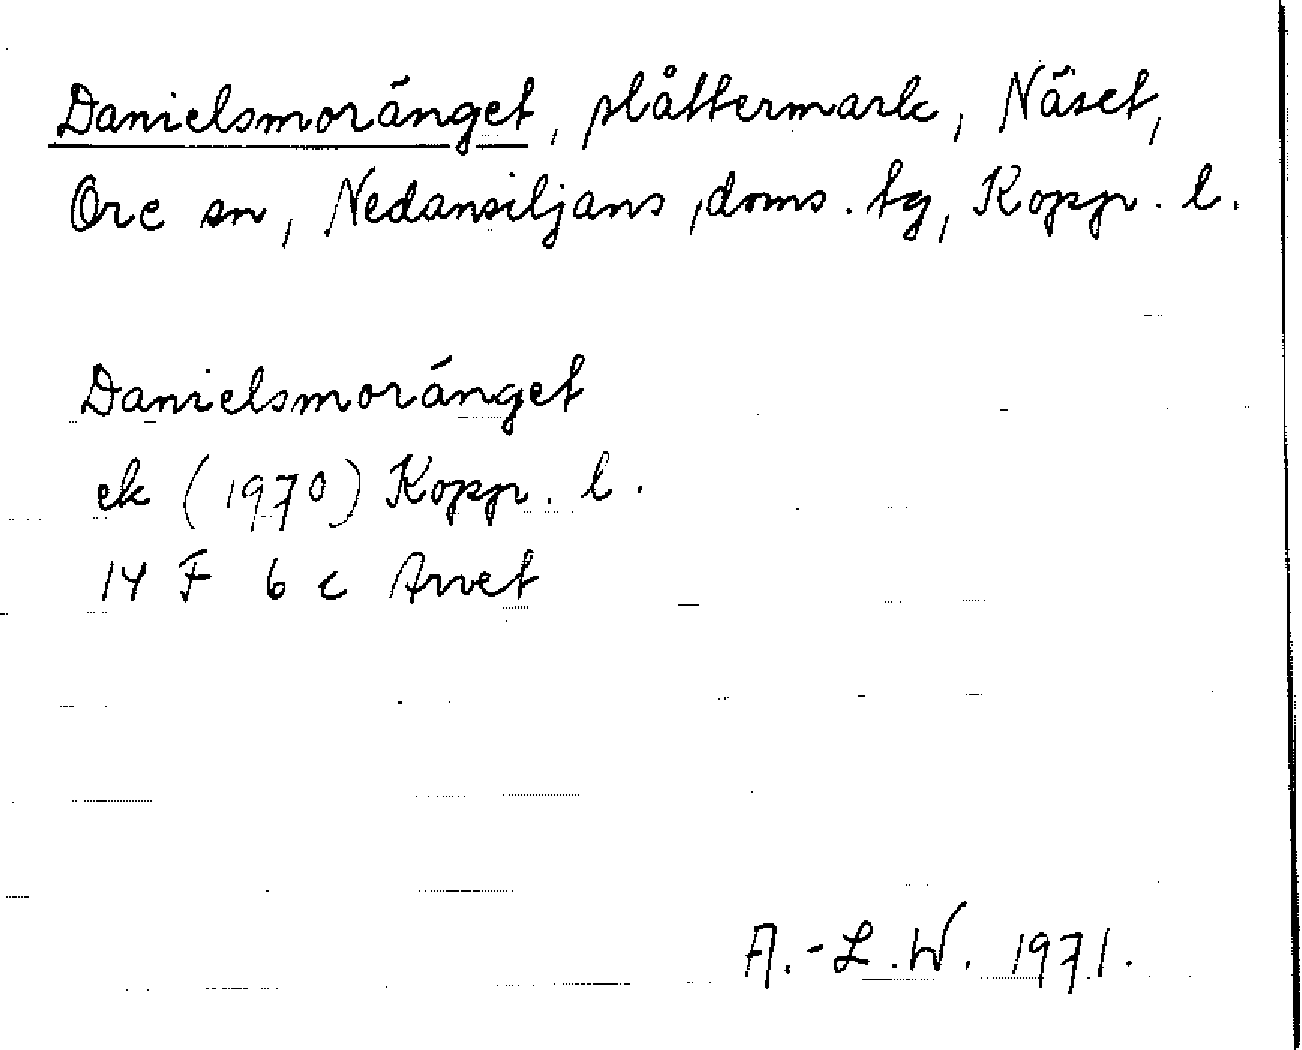 Danielsmoränget, slåttermark, Näset,
Ore sn, Nedansiljans doms. tg, Kopp. l.
Danielsmoränget
ek (1970) Kopp. l.
14 F 6 c Arvet
A.-L.W. 1971.